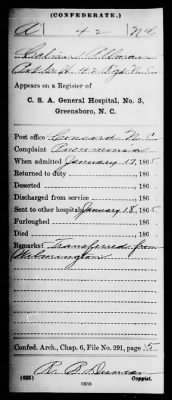 (CONFEDERATE.)
A 42 N C
Co. H. 42 Regt N. C.
Appears on a Register of
C. S. A. General Hospital, No. 3,
Greensboro, N. C.
Post office Concord N. C.
Complaint Pneumonia
When admitted January 17, 1865
Returned to duty , 186
Deserted , 186
Discharged from service , 186
Sent to other hospital January 18, 1865
Furloughed , 186
Died , 186
Remarks: Transferred from
Wilmington
Confed. Arch., Chap. 6, File No. 291, page 5
R. B. Duncan
(635) Copyist.